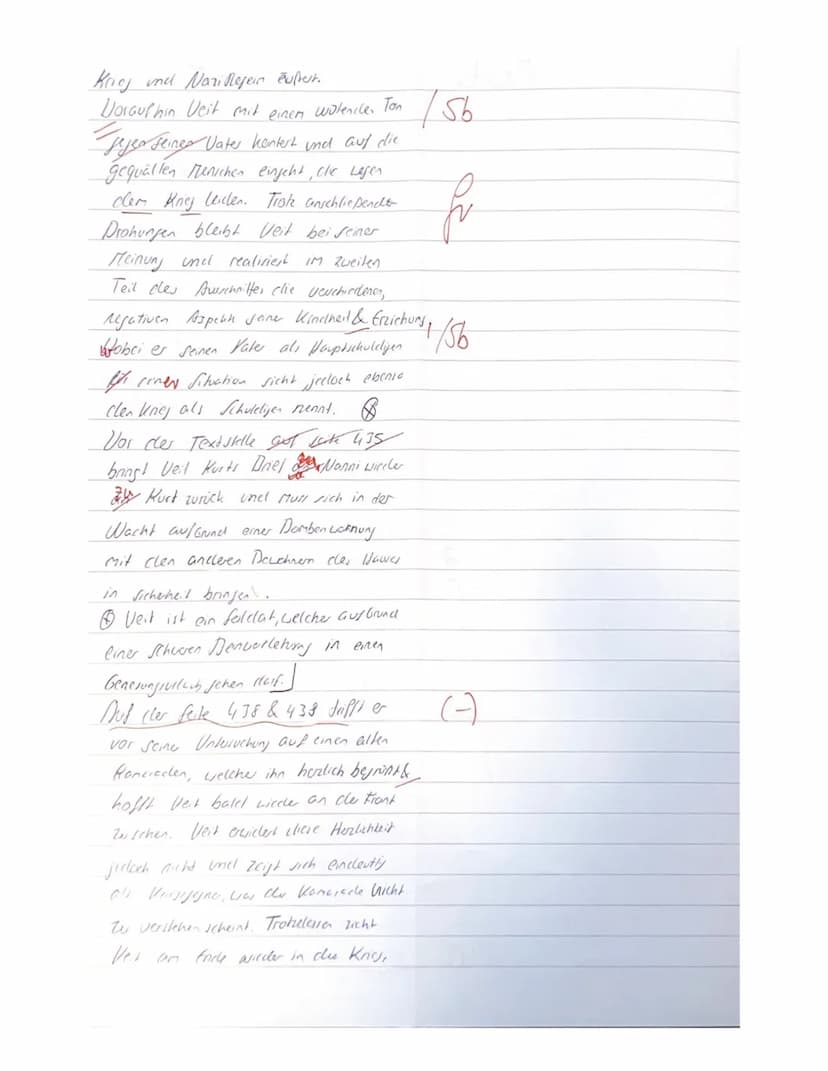 Krieg und Nazi Regein äußert.
Woraufhin Veit mit einem wütenden Ton /Sb
gegen seinen Vater kontert und auf die
gequälten Menschen eingeht, die wegen
dem Krieg leiden. Trotz anschließender Gr
Drohungen bleibt Veit bei seiner
Meinung und realisiert im zweiten
Teil des Ausschnittes die verschiedenen,
negativen Aspekte seiner Kindheit & Erziehung, /Sb
Wobei er seinen Vater als Hauptschuldigen
einer Situation sieht jedoch ebenso
den Krieg als Schuldigen nennt. ⊗
Vor der Textstelle auf Seite 435
bringt Veit Kurts Brief Nanni wieder
zu Kurt zurück und muss sich in der
Nacht aufGrund einer Bombenwarnung
mit den anderen Bewohnern des Hauses
in Sicherheit bringen.
⊗ Veit ist ein Soldat, welcher aufGrund
einer schweren Beinverletzung in einen
Genesungsurlaub gehen darf.
Auf der Seite 438 & 439 trifft er (-)
vor seine Untersuchung auf einen alten
Kameraden, welcher ihn herzlich begrüßt &
hofft Veit bald wieder an der Front
zu sehen. Veit erwidert diese Herzlichkeit
jedoch nicht und zeigt sich eindeutig
als Kriegsgegner, was der Kamerade nicht
zu verstehen scheint. Trotzdessen zieht
Veit am Ende wieder in den Krieg,